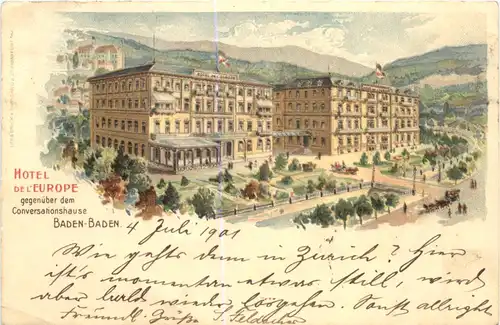 HOTEL
DE L'EUROPE
gegenüber dem
Conversationshause
BADEN-BADEN.
4 Juli 1901
Wie gehts denn in Zürich? Hier
ist's momentan etwas still, wird
aber bald wieder losgehen. Sonst allright
Freundl. Grüße